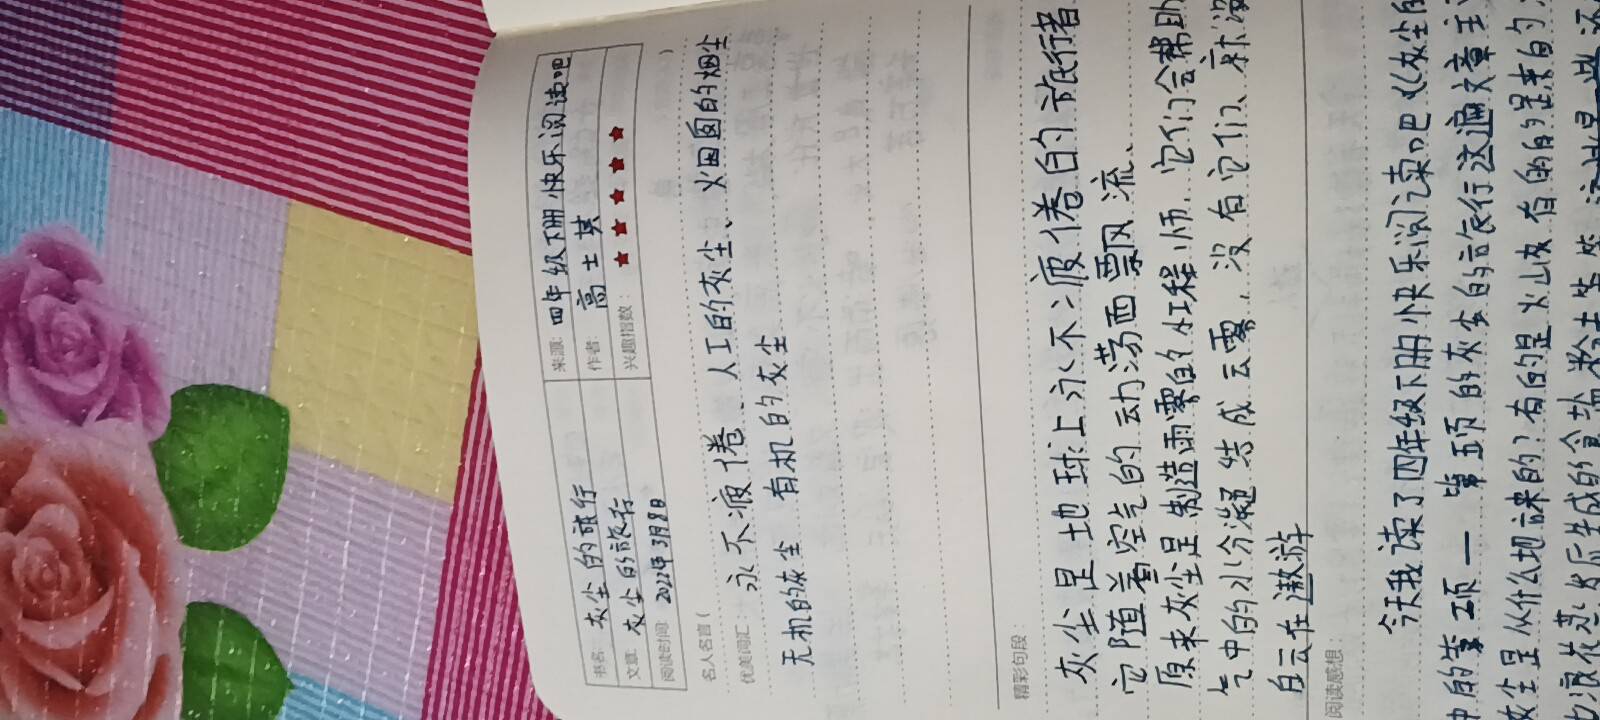 书名: 灰尘的旅行 来源: 四年级下册快乐阅读吧
文章: 灰尘的旅行 作者: 高士其
阅读时间: 2022年3月8日 兴趣指数: ★ ★ ★ ★ ★
名人名言(
优美词汇:
永不疲倦、人工的灰尘、烟囱的烟尘
无机的灰尘 有机的灰尘
精彩句段:
灰尘是地球上永不疲倦的旅行者
它随着空气的动荡而飘流、
原来灰尘是制造雨雾的小工程师.它们会帮助
气中的水分凝结成云雾、没有它们、就没
白云在遨游
阅读感想:
今天我读了四年级下册快乐阅读吧《灰尘的
中的第 项 — 第五项的灰尘的旅行这遍文章主
灰尘是从什么地来的?有的是火山皮 有的的是来自